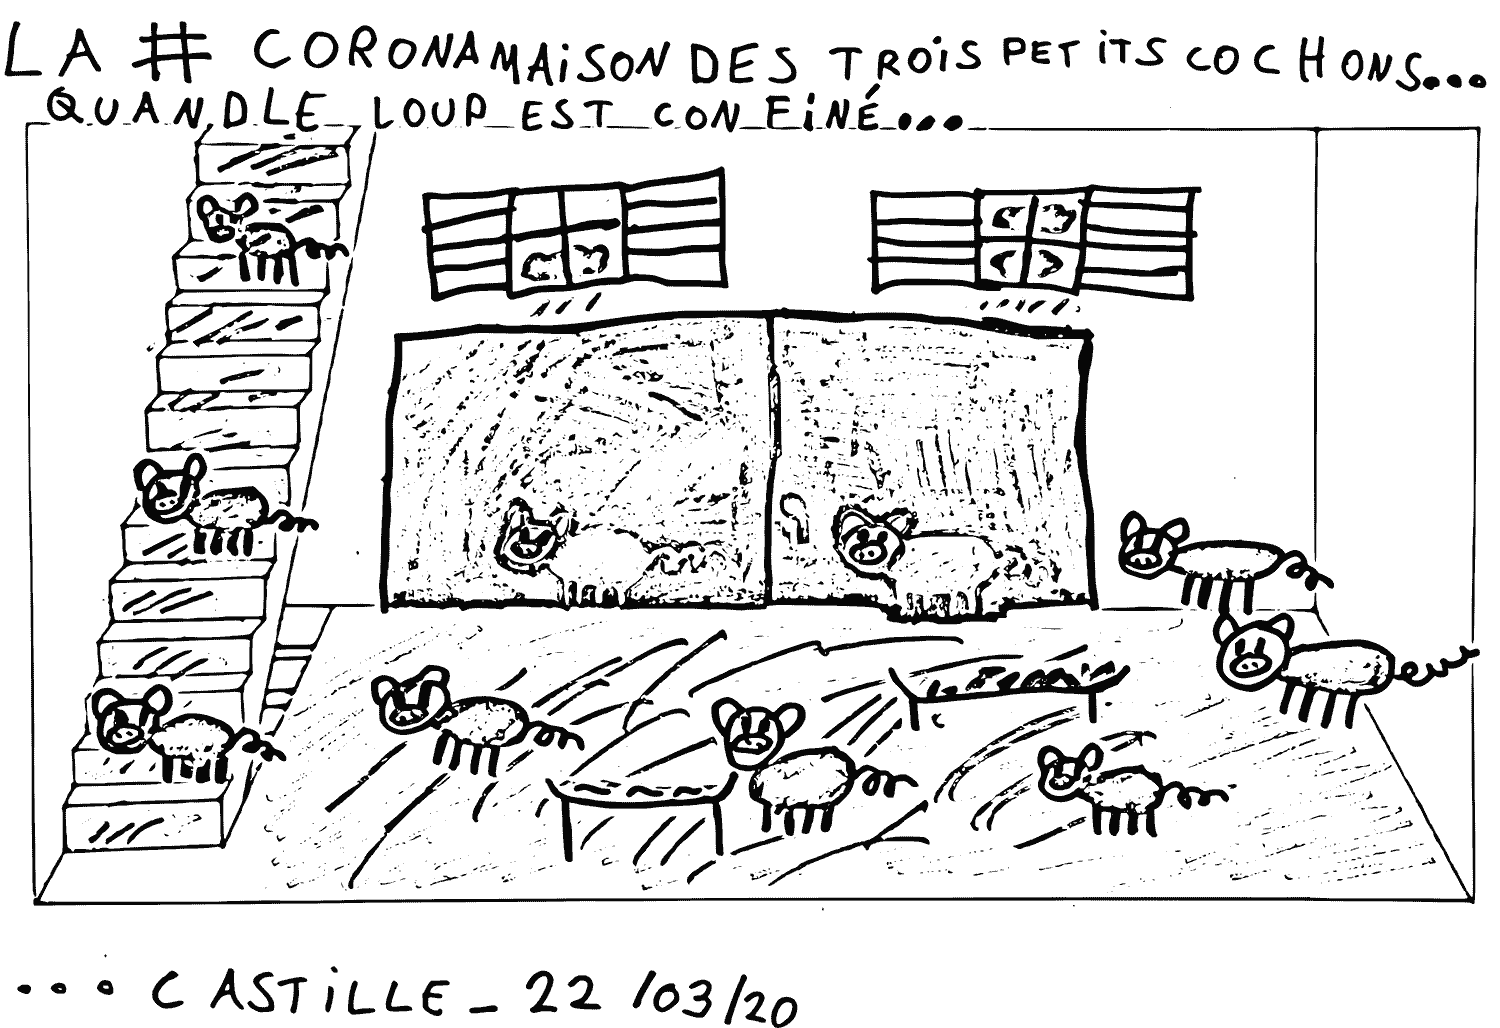 LA # CORONAMAiSON DES TROiS PETiTS COCHONS...
QUAND LE LOUP EST CONFiNÉ...
... CASTiLLE _ 22/03/20